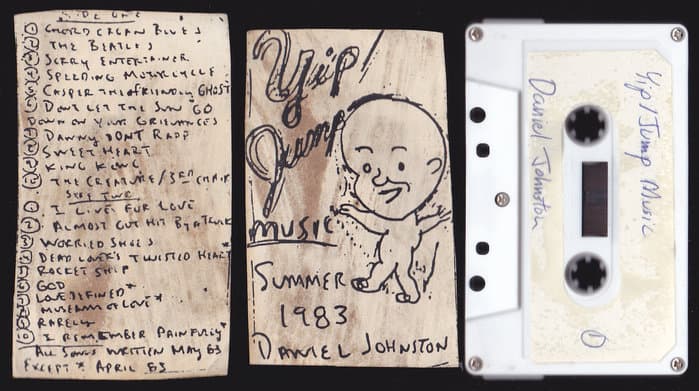 SIDE ONE
1 CHORD ORGAN BLUES
2 THE BEATLES
3 SORRY ENTERTAINER
4 SPEEDING MOTORCYCLE
5 CASPER THE FRIENDLY GHOST
6 DON'T LET THE SUN GO
DOWN ON YOUR GRIEVANCES
7 DANNY DONT RAPP
8 SWEET HEART
9 KING KONG
10 THE CREATURE/3RD CHAIR
SIDE TWO
1 I LIVE FOR LOVE
2 ALMOST GOT HIT BY A TRUCK
3 WORRIED SHOES
4 DEAD LOVER'S TWISTED HEART*
5 ROCKET SHIP
6 GOD
7 LOVE DEFINED*
8 MUSEUM OF LOVE*
9 RARELY
10 I REMEMBER PAINFULLY*
ALL SONGS WRITTEN MAY 83
EXCEPT * APRIL 83
Yip/
Jump
MUSIC
SUMMER
1983
DANIEL JOHNSTON
Yip/Jump Music
Daniel Johnston